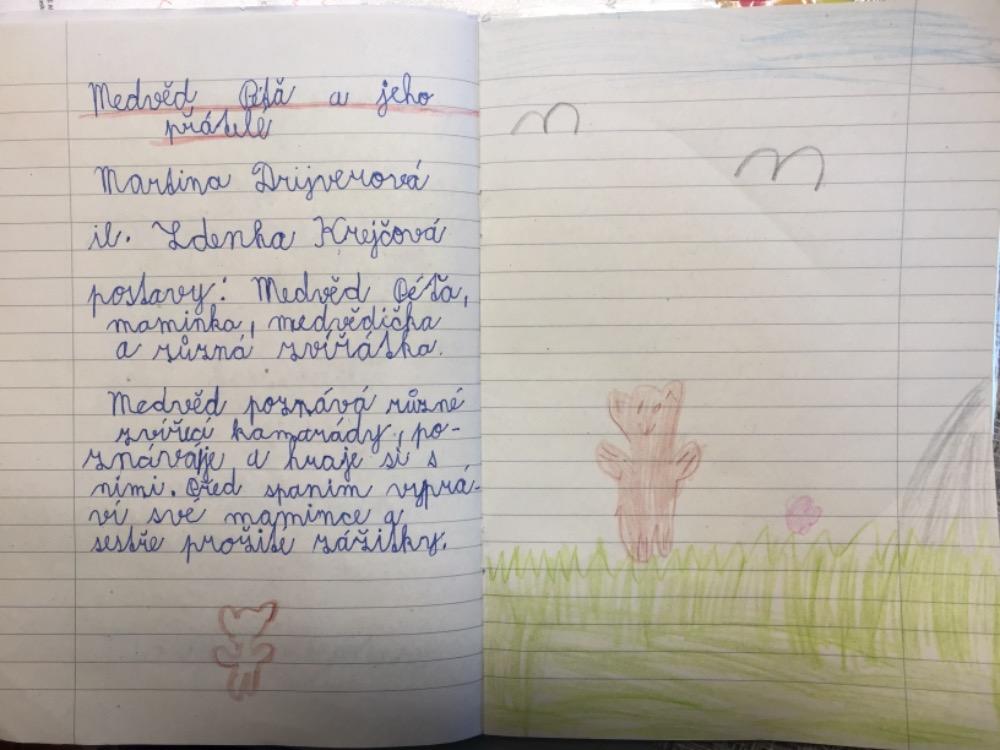 Medvěd Péťa a jeho
přátelé
Martina Drijverová
il. Zdenka Krejčová
postavy: Medvěd Péťa,
maminka, medvědička
a různá zvířátka.
Medvěd poznává různé
zvířecí kamarády, po-
znáváje a hraje si s
nimi. Před spaním vyprá-
ví své mamince a
sestře prožité zážitky.